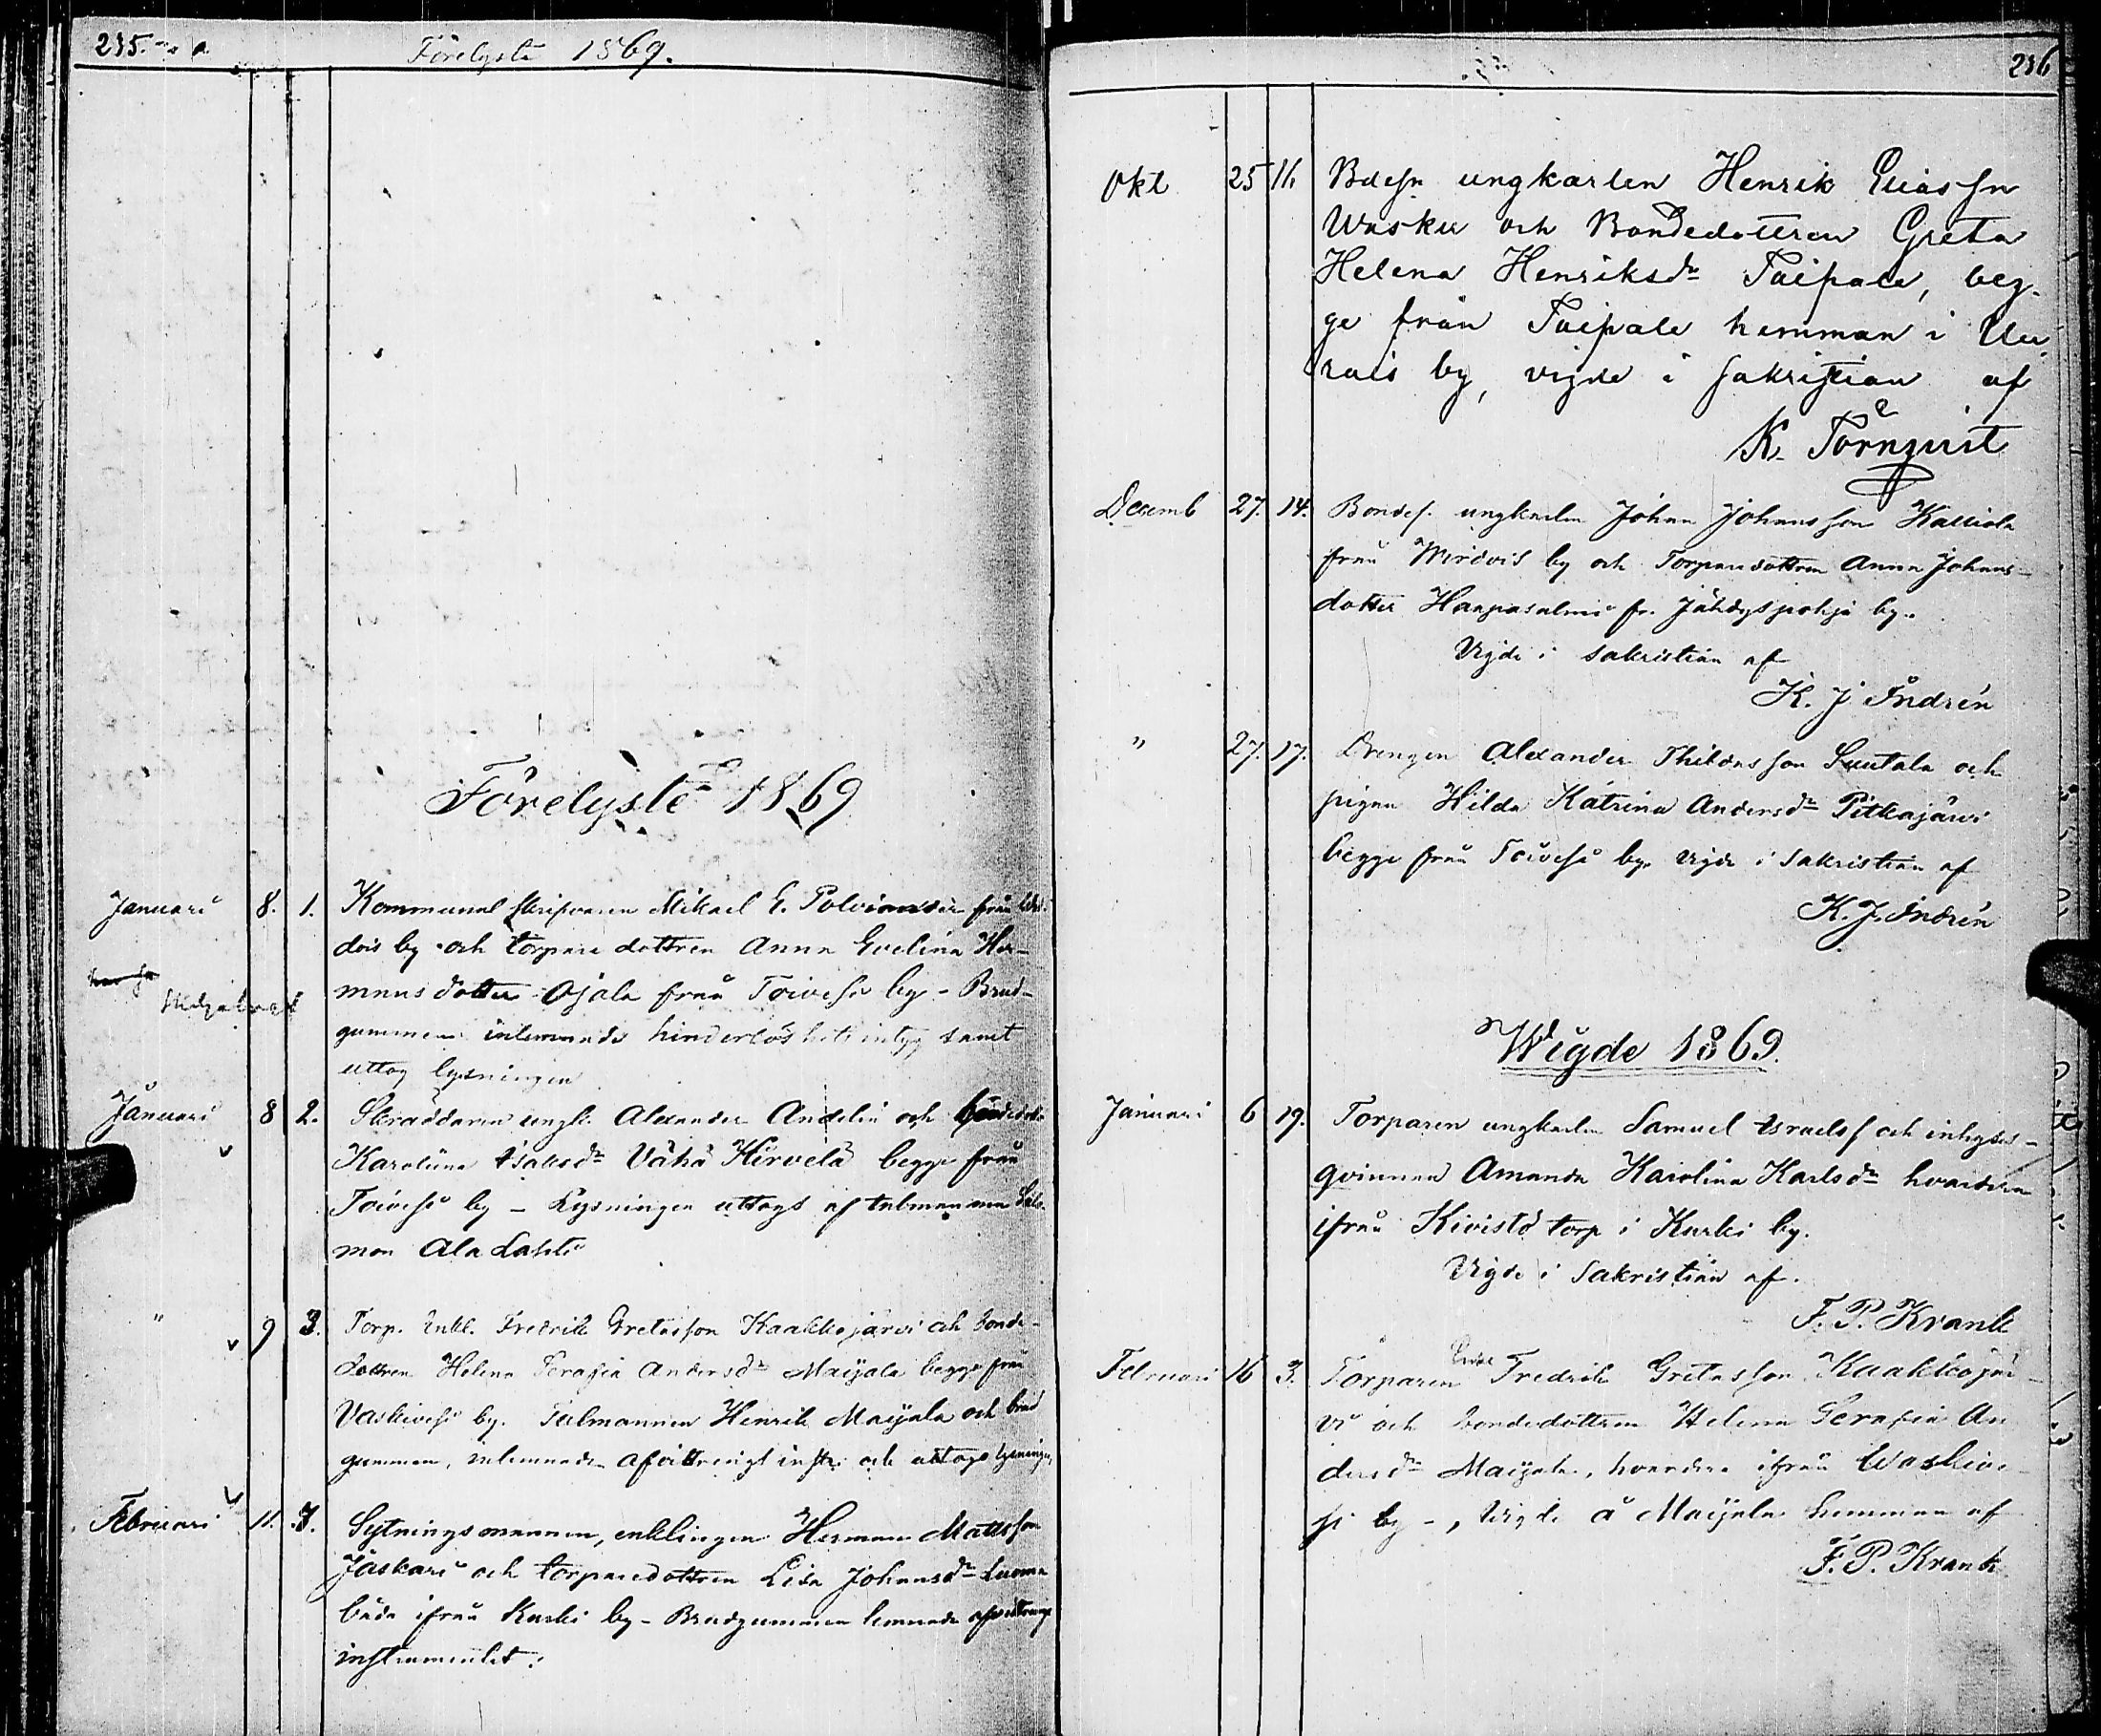 235.
Förelyste 1869.
Förelyste 1869
Januari 8. 1. Kommunal skrifvaren Mikael E. Polviander från
dois by och torpare dottren Anna Evelina Her-
mans dotter Ojala från Toivesi by - Brud-
gummen inlemnade hinderlöshets intyg samt
uttog lysningen
Januari 8 2. Skräddaren ungk. Alexander Andelin och bondedott.
Karolina Isaksdr Vähä Hirvelä begge från
Toivesi by - Lysningen uttogs af talmannen Salo-
mon Ala Lahti
" 9 3. Torp. Enkl. Fredrik Gretasson Kaakkojärvi och bonde-
dottren Helena Serafia Andersdr Maijala begge från
Vaskivesi by. Talmannen Henrik Maijala och brud
gummen, inlemnade afvittringsinstr. och uttogo lysningen
Februari 11. 7. Sytningsmannen, enklingen Herman Mattsson
Jäskari och torparedottren Lisa Johansdr Luoma
båda ifrån Kurki by - Brudgummen lemnade afvittrings
instrumentet.
236
Okt 25 11. Bdesn ungkarlen Henrik Eliassn
Wasku och Bondedottren Greta
Helena Henriksdr Taipale, beg-
ge från Taipale hemman i Uu
rais by, vigde i sakristian af
K. Törnqvist
Decemb 27. 14. Bondes. ungkarln Johan Johansson Kalliola
från Wirdois by och Torparedottren Anna Johans-
dotter Haapasalmi fr. Jähdyspohja by.
Vigde i sakristian af
K. J Indrén
" 27. 17. Drengen Alexander Thildasson Suutala och
pigan Hilda Katrina Andersdr Pitkäjärvi
begge från Toivesi by. Vigde i Sakristian af
K. J. Indrén
Wigde 1869.
Januari 6 19. Torparen ungkarln Samuel Israelss och inhyses-
qvinnan Amanda Karolina Karlsdr hvardera
ifrån Kivistö torp i Kurki by.
Vigde i Sakristian af.
F. P. Krank
Februari 16 3. Torparen Enkl Fredrik Gretasson Kaakkojär
vi och bondedottren Helena Serafia An
dersdr Maijala, hvardera ifrån Waskive-
si by -, Vigde å Maijala hemman af
F. P. Krank